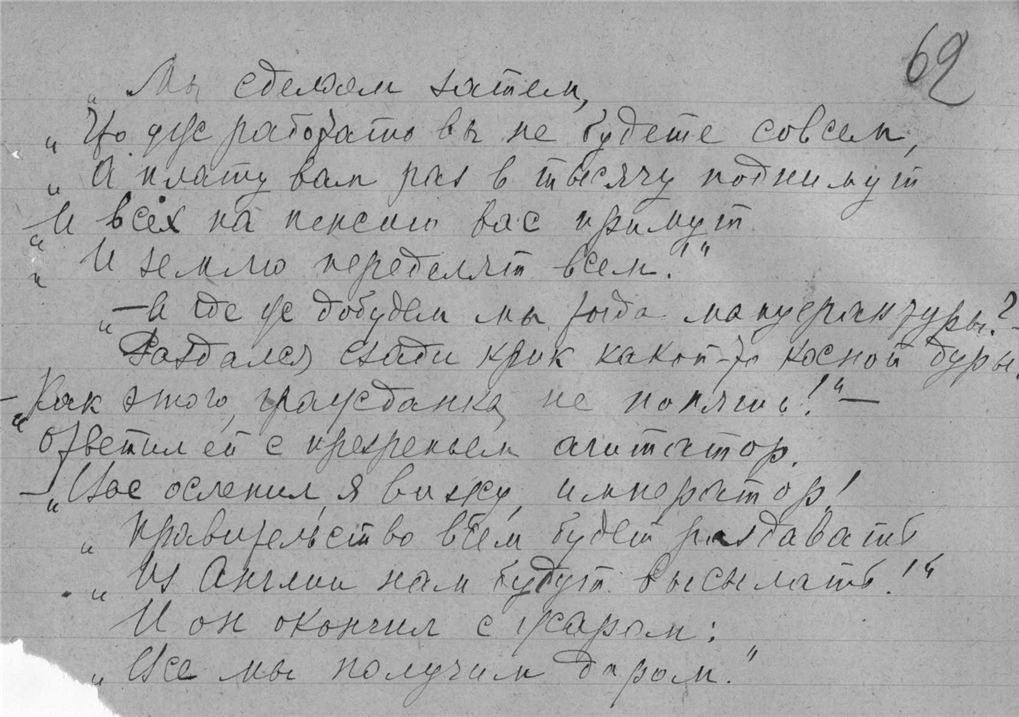 62
„Мы сделаем затем,
„Что уж работать вы не будете совсем,
„А плату вам раз в тысячу поднимут
„И всех на пенсию вас примут
„И землю переделят всем."“
„— А где же добудем мы тогда мануфактуры?“—
Раздался сзади крик какой-то косной дуры.
—„Как этого, гражданка, не понять!“—
Ответил ей с презреньем агитатор.
—„Вас ослепил, я вижу, император!
„Правительство всем будет раздавать
„Из Англии нам будут высылать!“
И он окончил с жаром:
„Все мы получим даром."